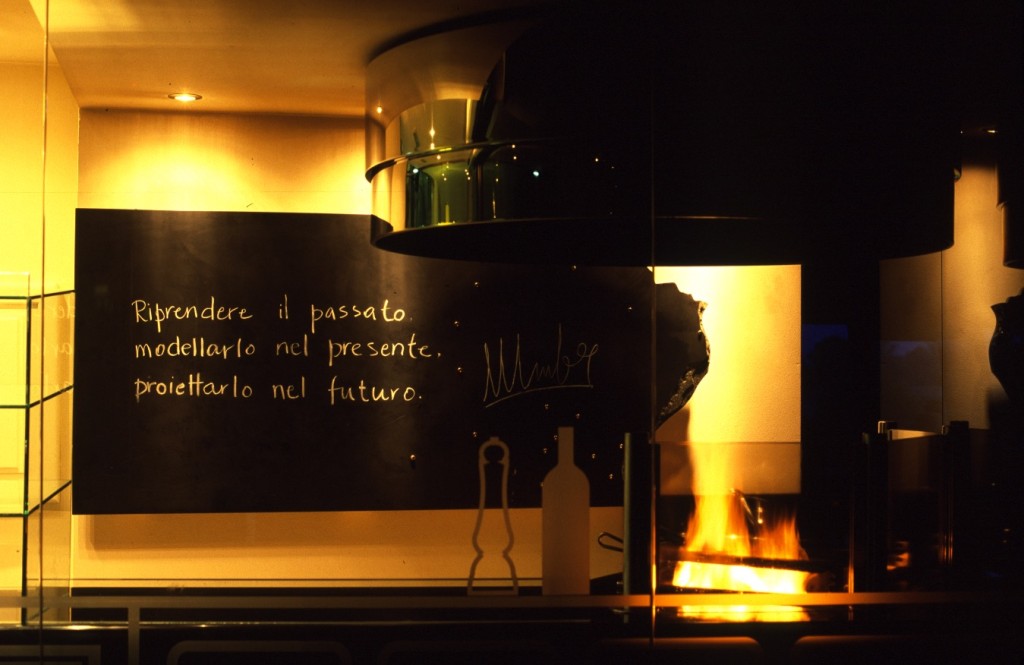 Riprendere il passato.
modellarlo nel presente.
proiettarlo nel futuro.